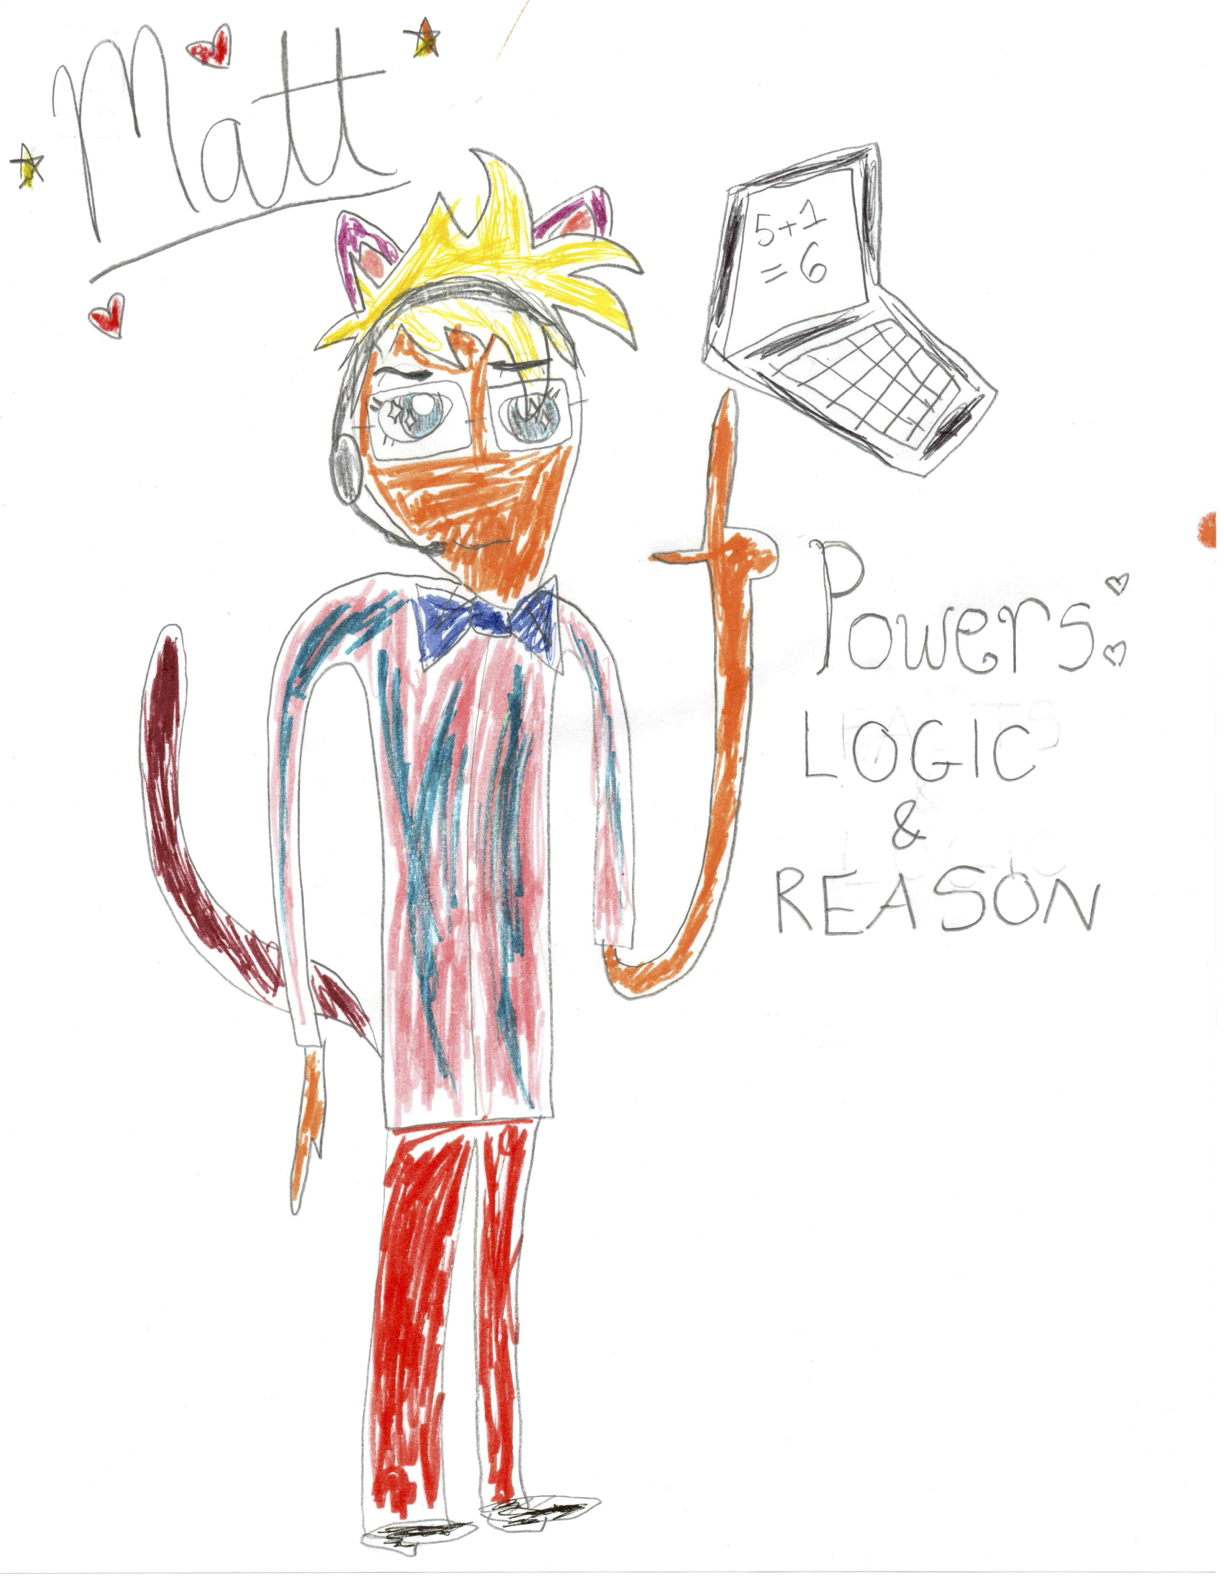 Matt
5+1
= 6
Powers:
LOGIC
&
REASON